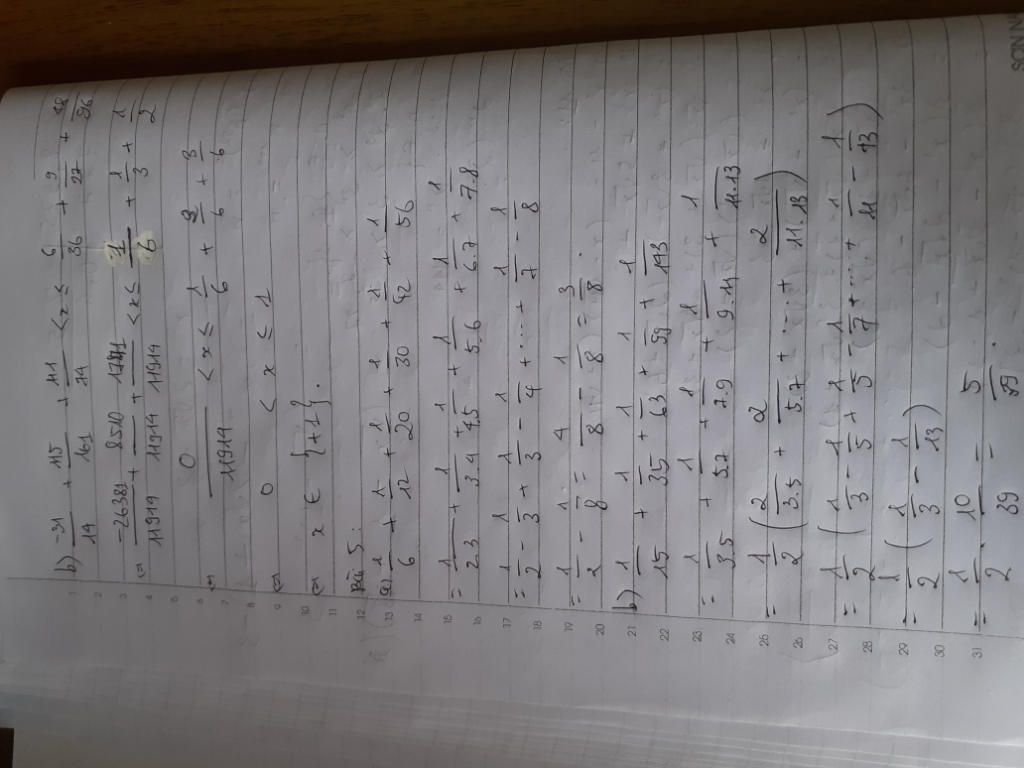 b) -31/14 + 115/161 + 111/74 < x ≤ 6/36 + 9/27 + 18/36
⇔ -26381/11914 + 8510/11914 + 17871/11914 < x ≤ 1/6 + 1/3 + 1/2
⇔ 0/11914 < x ≤ 1/6 + 2/6 + 3/6
⇔ 0 < x ≤ 1
⇔ x ∈ {+1}.
Bài 5:
a) 1/6 + 1/12 + 1/20 + 1/30 + 1/42 + 1/56
= 1/2.3 + 1/3.4 + 1/4.5 + 1/5.6 + 1/6.7 + 1/7.8
= 1/2 - 1/3 + 1/3 - 1/4 + ... + 1/7 - 1/8
= 1/2 - 1/8 = 4/8 - 1/8 = 3/8.
b) 1/15 + 1/35 + 1/63 + 1/99 + 1/143
= 1/3.5 + 1/5.7 + 1/7.9 + 1/9.11 + 1/11.13
= 1/2 (2/3.5 + 2/5.7 + ... + 2/11.13)
= 1/2 (1/3 - 1/5 + 1/5 - 1/7 + ... + 1/11 - 1/13)
= 1/2 (1/3 - 1/13)
= 1/2 . 10/39 = 5/39.